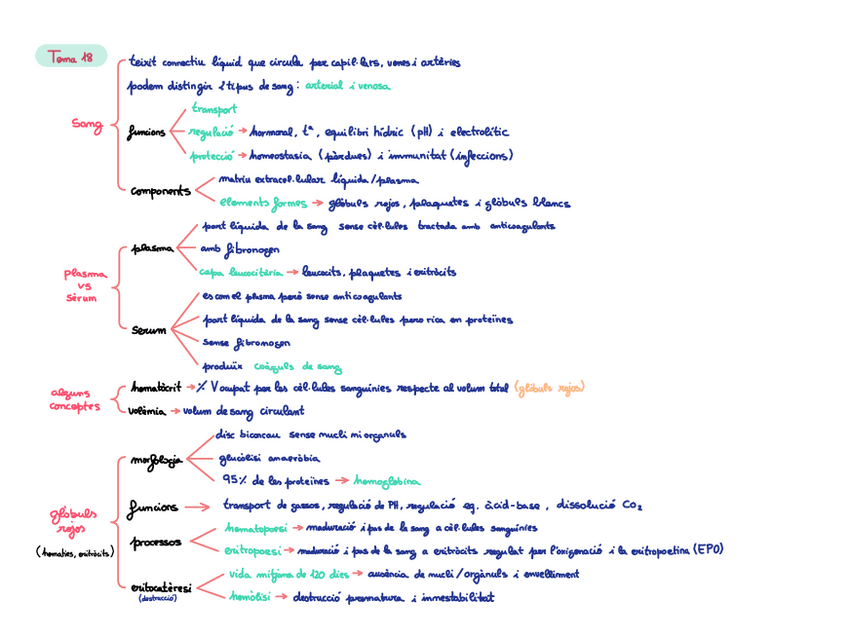 Tema 18
Sang
teixit connectiu líquid que circula per capil·lars, venes i artèries
podem distingir 2 tipus de sang: arterial i venosa
funcions
transport
regulació → hormonal, tª, equilibri hídric (pH) i electrolític
protecció → homeostasia (pèrdues) i immunitat (infeccions)
components
matriu extracel·lular líquida/plasma
elements formes → glòbuls rojos, plaquetes i glòbuls blancs
plasma
vs
sèrum
plasma
part líquida de la sang sense cèl·lules tractada amb anticoagulants
amb fibronogen
capa leucocitèria → leucocits, plaquetes i eritròcits
serum
es com el plasma però sense anticoagulants
part líquida de la sang sense cèl·lules pero rica en proteïnes
sense fibronogen
produïx coàguls de sang
alguns
conceptes
hematòcrit → % V ocupat per les cèl·lules sanguinies respecte al volum total (glòbuls rojos)
volèmia → volum de sang circulant
glòbuls
rojos
(hematies, eritròcits)
morfologia
disc biconcau sense nucli ni organuls
glucòlisi anaeròbia
95% de les proteïnes → hemoglobina
funcions → transport de gasos, regulació de PH, regulació eq. àcid-base, dissolució CO₂
processos
hematopoesi → maduració i pas de la sang a cèl·lules sanguínies
eritropoesi → maduració i pas de la sang a eritròcits regulat per l'oxigenació i la eritropoetina (EPO)
eritocatèresi
(destrucció)
vida mitjana de 120 dies → ausència de nucli/orgànuls i envelliment
hemòlisi → destrucció prematura i innestabilitat